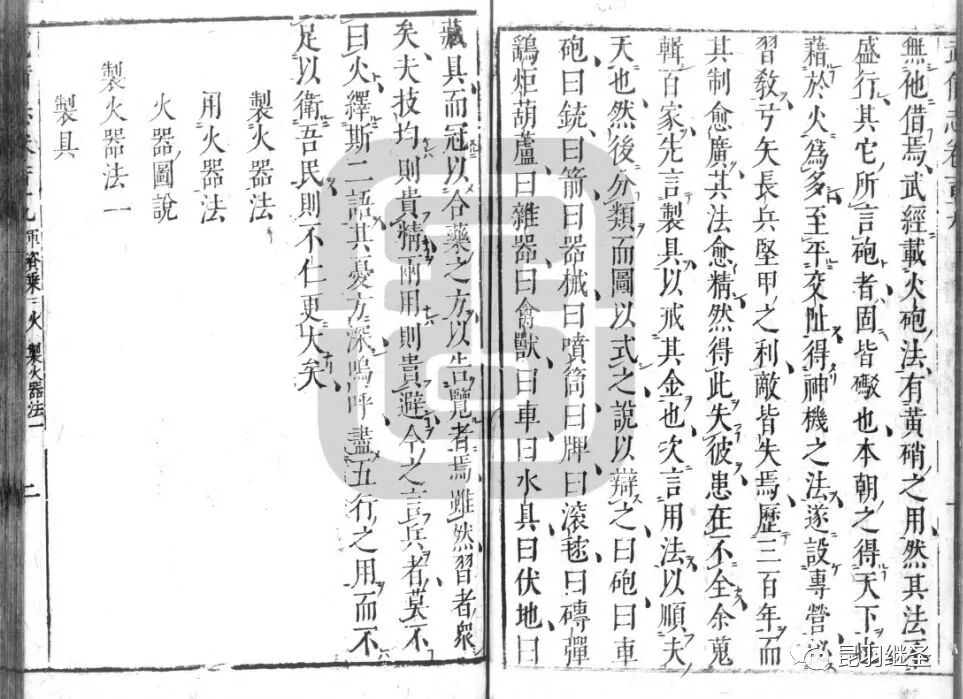 無他借焉武經載火砲法有黃硝之用然其法
盛行其它所言砲者固皆礮也本朝之得天下
藉於火爲多至平交阯得神機之法遂設專營
習敎弓矢長兵堅甲之利敵皆失焉歷三百年而
其制愈廣其法愈精然得此失彼患在不全余蒐
輯百家先言製具以戒其金也次言用法以順夫
天也然後分類而圖以式之說以辯之曰砲曰車
砲曰銃曰箭曰器械曰噴筒曰牌曰滾毬曰磚彈
鷂炬葫蘆曰雜器曰禽獸曰車曰水具曰伏地曰
藏具而冠以合藥之方以告覽者焉雖然習者衆
矣夫技均則貴精兩用則貴避今之言兵者莫不
曰火繹斯二語其憂方深嗚呼盡五行之用而不
足以衛吾民則不仁更大矣
製火器法
用火器法
火器圖說
製火器法一
製具
火 製火器法一
二
昆羽继圣